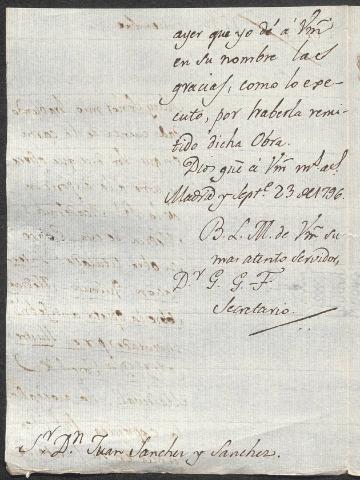 ayer que yo dé á Vm
en su nombre las
gracias, como lo exe-
cuto, por haberla remi-
tido dicha Obra.
Dios gue á Vm m.s a.s
Madrid y Sept.e 23 de 1796.
B. L. M. de Vm su
mas atento servidor,
D.r G. G. F.
Secretario.
S.r D.n Juan Sanchez y Sanchez.